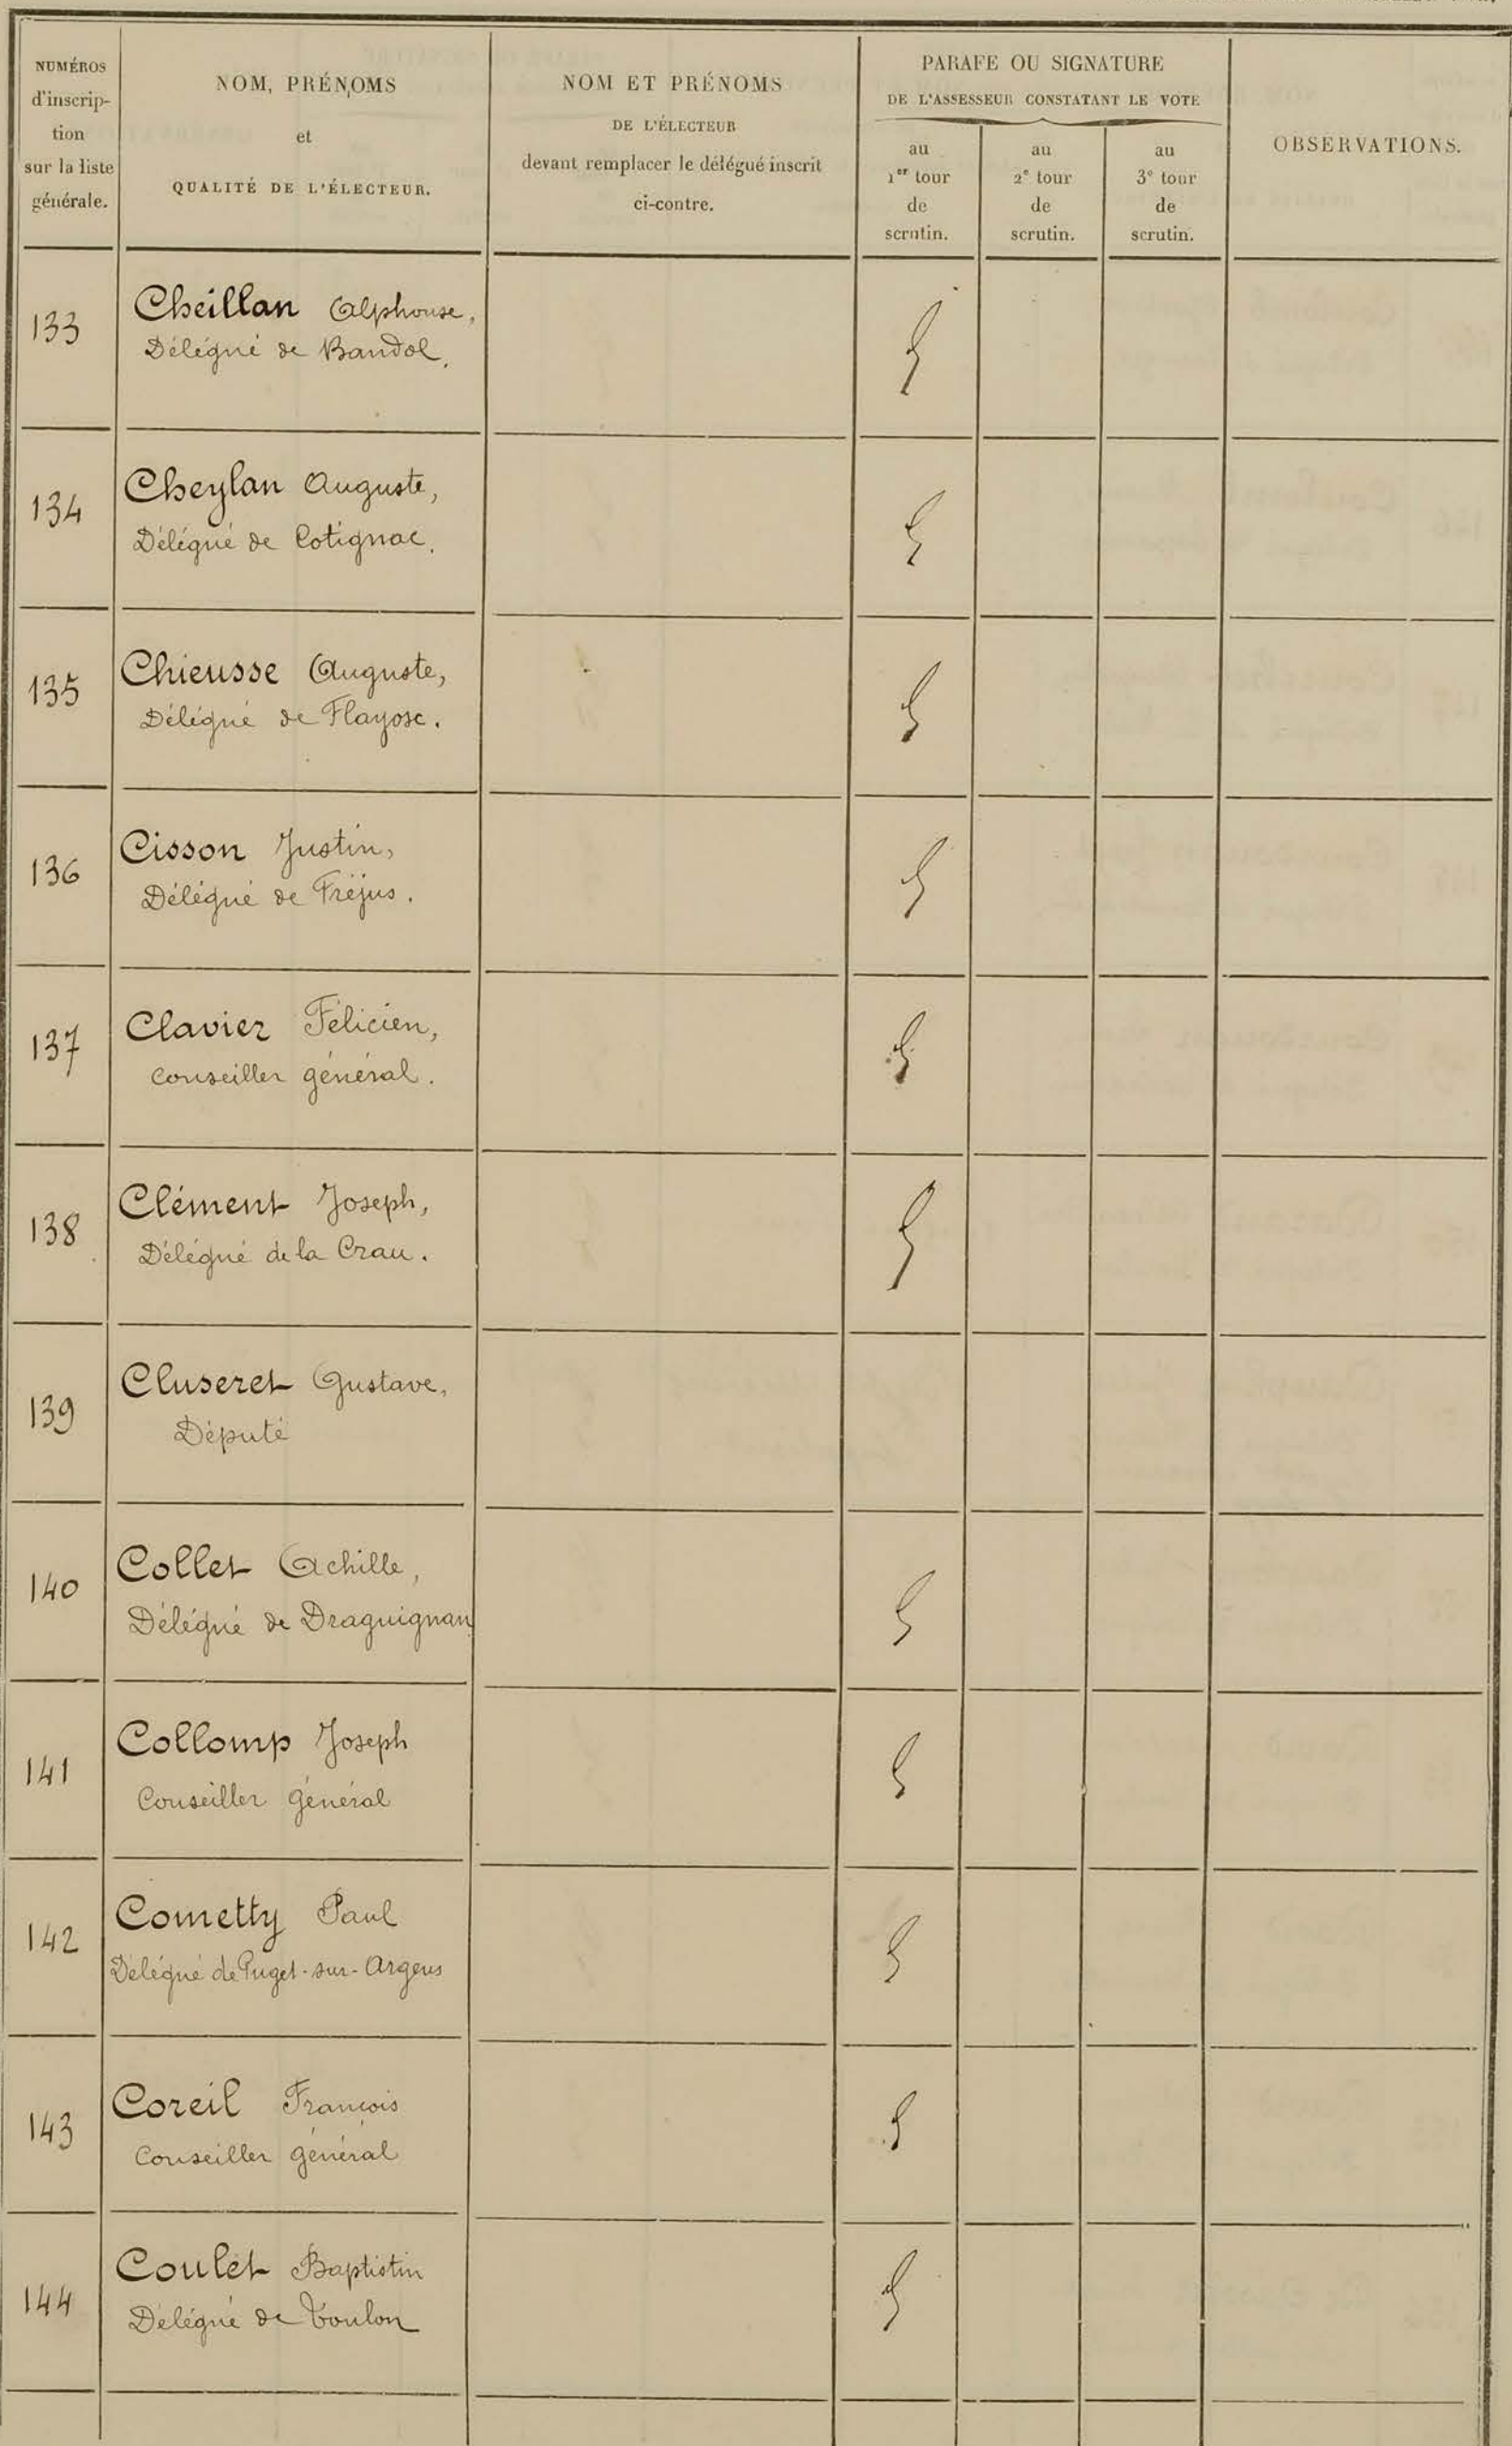 NUMÉROS
d'inscrip-
tion
sur la liste
générale.
NOM, PRÉNOMS
et
QUALITÉ DE L'ÉLECTEUR.
NOM ET PRÉNOMS
DE L'ÉLECTEUR
devant remplacer le délégué inscrit
ci-contre.
PARAFE OU SIGNATURE
DE L'ASSESSEUR CONSTATANT LE VOTE
au
1er tour
de
scrutin.
au
2e tour
de
scrutin.
au
3e tour
de
scrutin.
OBSERVATIONS.
133
Cheillan Alphonse,
Délégué de Bandol.
134
Cheylan Auguste,
Délégué de Cotignac.
135
Chieusse Auguste,
Délégué de Flayosc.
136
Cisson Justin,
Délégué de Fréjus.
137
Clavier Félicien,
Conseiller général.
138
Clément Joseph,
Délégué de la Crau.
139
Cluseret Gustave,
Député
140
Collet Achille,
Délégué de Draguignan
141
Collomp Joseph
Conseiller général
142
Cometty Paul
Délégué de Puget-sur-Argens
143
Coreil François
Conseiller général
144
Coulet Baptistin
Délégué de Toulon